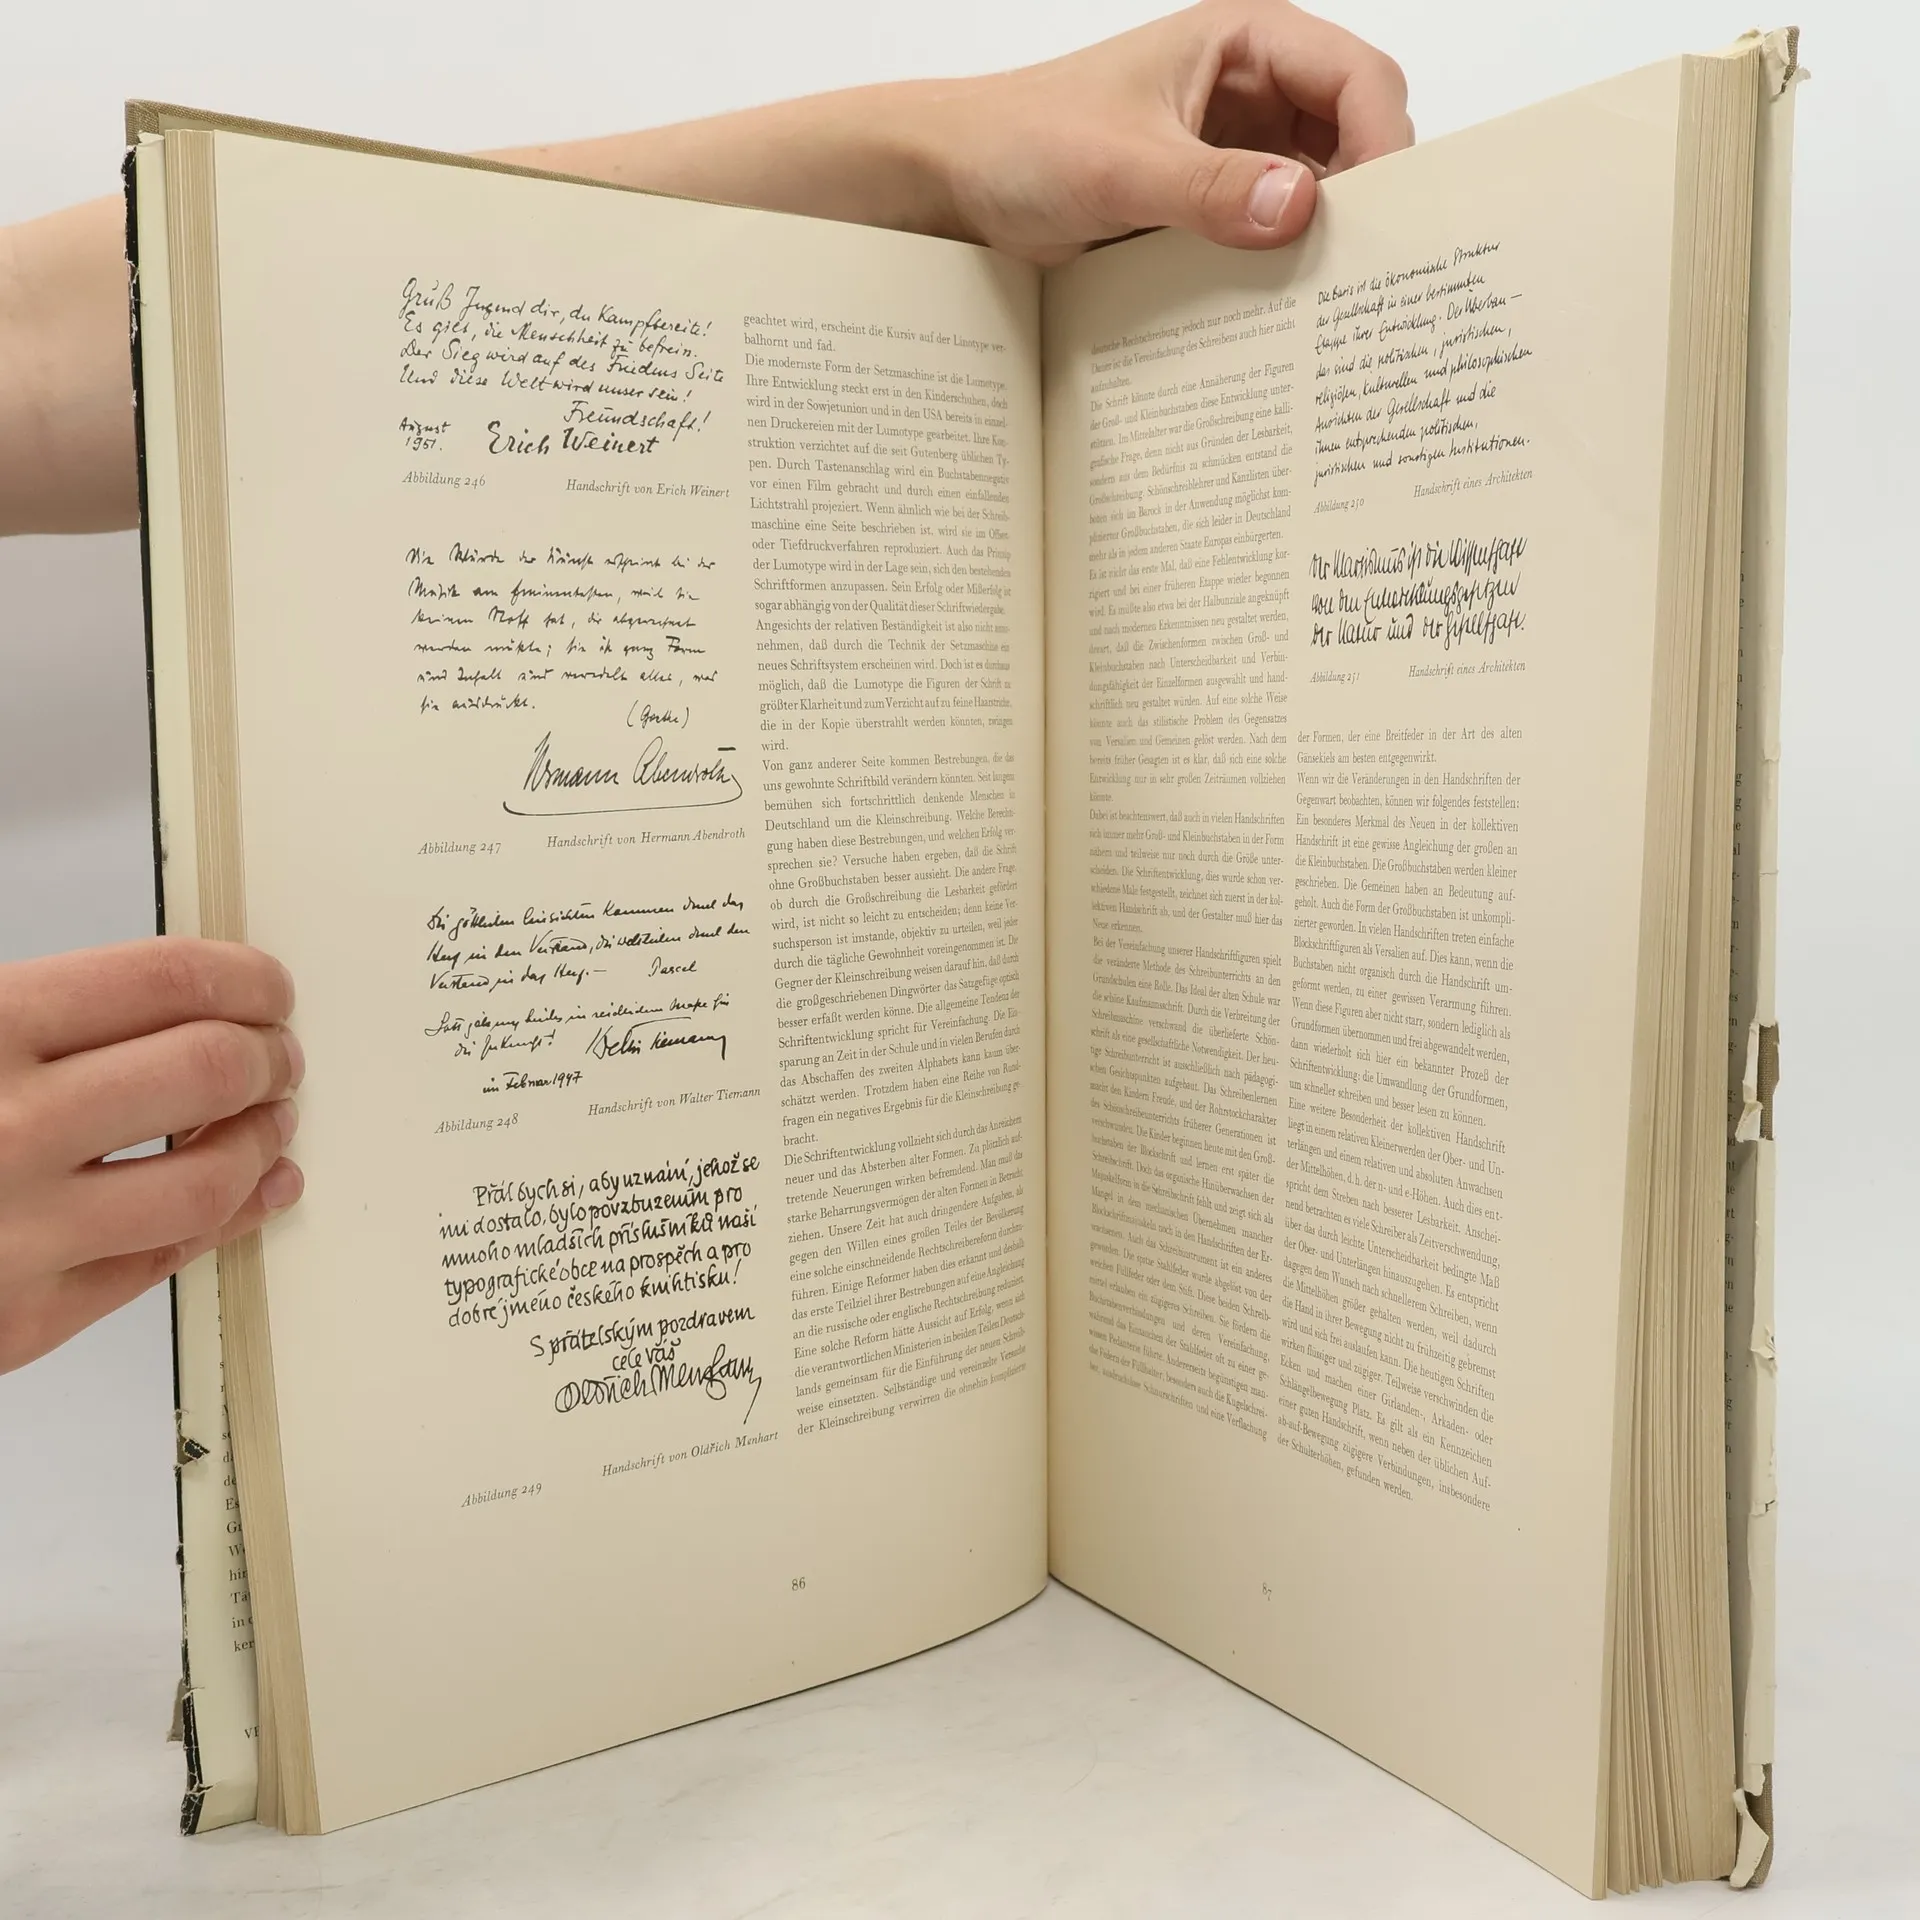 Gruß Jugend dir, du Kampfbereite!
Es gilt, die Menschheit zu befrein.
Der Sieg wird auf des Friedens Seite
Und diese Welt wird unser sein!
Freundschaft!
August
1951.
Erich Weinert
Abbildung 246
Handschrift von Erich Weinert
Die Würde der Kunst erscheint bei der
Musik am eminentesten, weil sie
keinen Stoff hat, der abgerechnet
werden müßte; sie ist ganz Form
und Inhalt und veredelt alles, was
sie ausdrückt.
(Goethe)
Hermann Abendroth
Abbildung 247
Handschrift von Hermann Abendroth
Die göttlichen Einsichten kommen durch das
Herz in den Verstand, die weltlichen durch den
Verstand in das Herz. —
im Februar 1947
Abbildung 248
Handschrift von Walter Tiemann
Přál bych si, aby uznání, jehož se
mi dostalo, bylo povzbuzením pro
mnoho mladších příslušníků naší
typografické obce na prospěch a pro
dobré jméno českého knihtisku!
S přátelským pozdravem
cele váš
Oldřich Menhart
Abbildung 249
Handschrift von Oldřich Menhart
geachtet wird, erscheint die Kursiv auf der Linotype ver-
balhornt und fad.
Die modernste Form der Setzmaschine ist die Lumotype.
Ihre Entwicklung steckt erst in den Kinderschuhen, doch
wird in der Sowjetunion und in den USA bereits in einzel-
nen Druckereien mit der Lumotype gearbeitet. Ihre Kon-
struktion verzichtet auf die seit Gutenberg üblichen Ty-
pen. Durch Tastenanschlag wird ein Buchstabennegativ
vor einen Film gebracht und durch einen einfallenden
Lichtstrahl projeziert. Wenn ähnlich wie bei der Schreib-
maschine eine Seite beschrieben ist, wird sie im Offset-
oder Tiefdruckverfahren reproduziert. Auch das Prinzip
der Lumotype wird in der Lage sein, sich den bestehenden
Schriftformen anzupassen. Sein Erfolg oder Mißerfolg ist
sogar abhängig von der Qualität dieser Schriftwiedergabe.
Angesichts der relativen Beständigkeit ist also nicht anzu-
nehmen, daß durch die Technik der Setzmaschine ein
neues Schriftsystem erscheinen wird. Doch ist es durchaus
möglich, daß die Lumotype die Figuren der Schrift zu
größter Klarheit und zum Verzicht auf zu feine Haarstriche,
die in der Kopie überstrahlt werden könnten, zwingen
wird.
Von ganz anderer Seite kommen Bestrebungen, die das
uns gewohnte Schriftbild verändern könnten. Seit langem
bemühen sich fortschrittlich denkende Menschen in
Deutschland um die Kleinschreibung. Welche Berechti-
gung haben diese Bestrebungen, und welchen Erfolg ver-
sprechen sie? Versuche haben ergeben, daß die Schrift
ohne Großbuchstaben besser aussieht. Die andere Frage,
ob durch die Großschreibung die Lesbarkeit gefördert
wird, ist nicht so leicht zu entscheiden; denn keine Ver-
suchsperson ist imstande, objektiv zu urteilen, weil jeder
durch die tägliche Gewohnheit voreingenommen ist. Die
Gegner der Kleinschreibung weisen darauf hin, daß durch
die großgeschriebenen Dingwörter das Satzgefüge optisch
besser erfaßt werden könne. Die allgemeine Tendenz der
Schriftentwicklung spricht für Vereinfachung. Die Ein-
sparung an Zeit in der Schule und in vielen Berufen durch
das Abschaffen des zweiten Alphabets kann kaum über-
schätzt werden. Trotzdem haben eine Reihe von Rund-
fragen ein negatives Ergebnis für die Kleinschreibung ge-
bracht.
Die Schriftentwicklung vollzieht sich durch das Anreichern
neuer und das Absterben alter Formen. Zu plötzlich auf-
tretende Neuerungen wirken befremdend. Man muß das
starke Beharrungsvermögen der alten Formen in Betracht
ziehen. Unsere Zeit hat auch dringendere Aufgaben, als
gegen den Willen eines großen Teiles der Bevölkerung
eine solche einschneidende Rechtschreibereform durchzu-
führen. Einige Reformer haben dies erkannt und deshalb
das erste Teilziel ihrer Bestrebungen auf eine Angleichung
an die russische oder englische Rechtschreibung reduziert.
Eine solche Reform hätte Aussicht auf Erfolg, wenn sich
die verantwortlichen Ministerien in beiden Teilen Deutsch-
lands gemeinsam für die Einführung der neuen Schreib-
weise einsetzten. Selbständige und vereinzelte Versuche
der Kleinschreibung verwirren die ohnehin komplizierte
86
deutsche Rechtschreibung jedoch nur noch mehr. Auf die
Dauer ist die Vereinfachung des Schreibens auch hier nicht
aufzuhalten.
Die Schrift könnte durch eine Annäherung der Figuren
der Groß- und Kleinbuchstaben diese Entwicklung unter-
stützen. Im Mittelalter war die Großschreibung eine kalli-
grafische Frage, denn nicht aus Gründen der Lesbarkeit,
sondern aus dem Bedürfnis zu schmücken entstand die
Großschreibung. Schönschreiblehrer und Kanzlisten über-
boten sich im Barock in der Anwendung möglichst kom-
plizierter Großbuchstaben, die sich leider in Deutschland
mehr als in jedem anderen Staate Europas einbürgerten.
Es ist nicht das erste Mal, daß eine Fehlentwicklung kor-
rigiert und bei einer früheren Etappe wieder begonnen
wird. Es müßte also etwa bei der Halbunziale angeknüpft
und nach modernen Erkenntnissen neu gestaltet werden,
derart, daß die Zwischenformen zwischen Groß- und
Kleinbuchstaben nach Unterscheidbarkeit und Verbin-
dungsfähigkeit der Einzelformen ausgewählt und hand-
schriftlich neu gestaltet würden. Auf eine solche Weise
könnte auch das stilistische Problem des Gegensatzes
von Versalien und Gemeinen gelöst werden. Nach dem
bereits früher Gesagten ist es klar, daß sich eine solche
Entwicklung nur in sehr großen Zeiträumen vollziehen
könnte.
Dabei ist beachtenswert, daß auch in vielen Handschriften
sich immer mehr Groß- und Kleinbuchstaben in der Form
nähern und teilweise nur noch durch die Größe unter-
scheiden. Die Schriftentwicklung, dies wurde schon ver-
schiedene Male festgestellt, zeichnet sich zuerst in der kol-
lektiven Handschrift ab, und der Gestalter muß hier das
Neue erkennen.
Bei der Vereinfachung unserer Handschriftfiguren spielt
die veränderte Methode des Schreibunterrichts an den
Grundschulen eine Rolle. Das Ideal der alten Schule war
die schöne Kaufmannsschrift. Durch die Verbreitung der
Schreibmaschine verschwand die überlieferte Schön-
schrift als eine gesellschaftliche Notwendigkeit. Der heu-
tige Schreibunterricht ist ausschließlich nach pädagogi-
schen Gesichtspunkten aufgebaut. Das Schreibenlernen
macht den Kindern Freude, und der Rohrstockcharakter
des Schönschreibunterrichts früherer Generationen ist
verschwunden. Die Kinder beginnen heute mit den Groß-
buchstaben der Blockschrift und lernen erst später die
Schreibschrift. Doch das organische Hinüberwachsen der
Majuskelform in die Schreibschrift fehlt und zeigt sich als
Mangel in dem mechanischen Übernehmen mancher
Blockschriftmajuskeln noch in den Handschriften der Er-
wachsenen. Auch das Schreibinstrument ist ein anderes
geworden. Die spitze Stahlfeder wurde abgelöst von der
weichen Füllfeder oder dem Stift. Diese beiden Schreib-
mittel erlauben ein zügigeres Schreiben. Sie fördern die
Buchstabenverbindungen und deren Vereinfachung,
während das Eintauchen der Stahlfeder oft zu einer ge-
wissen Pedanterie führte. Andererseits begünstigen man-
che Federn der Füllhalter, besonders auch die Kugelschrei-
ber, ausdruckslose Schnurschriften und eine Verflachung
Die Basis ist die ökonomische Struktur
der Gesellschaft in einer bestimmten
Etappe ihrer Entwicklung. Der Überbau —
das sind die politischen, juristischen,
religiösen, kulturellen und philosophischen
Ansichten der Gesellschaft und die
ihnen entsprechenden politischen,
juristischen und sonstigen Institutionen.
Abbildung 250
Handschrift eines Architekten
Der Marxismus ist die Wissenschaft
von den Entwicklungsgesetzen
der Natur und der Gesellschaft.
Abbildung 251
Handschrift eines Architekten
der Formen, der eine Breitfeder in der Art des alten
Gänsekiels am besten entgegenwirkt.
Wenn wir die Veränderungen in den Handschriften der
Gegenwart beobachten, können wir folgendes feststellen:
Ein besonderes Merkmal des Neuen in der kollektiven
Handschrift ist eine gewisse Angleichung der großen an
die Kleinbuchstaben. Die Großbuchstaben werden kleiner
geschrieben. Die Gemeinen haben an Bedeutung auf-
geholt. Auch die Form der Großbuchstaben ist unkompli-
zierter geworden. In vielen Handschriften treten einfache
Blockschriftfiguren als Versalien auf. Dies kann, wenn die
Buchstaben nicht organisch durch die Handschrift um-
geformt werden, zu einer gewissen Verarmung führen.
Wenn diese Figuren aber nicht starr, sondern lediglich als
Grundformen übernommen und frei abgewandelt werden,
dann wiederholt sich hier ein bekannter Prozeß der
Schriftentwicklung: die Umwandlung der Grundformen,
um schneller schreiben und besser lesen zu können.
Eine weitere Besonderheit der kollektiven Handschrift
liegt in einem relativen Kleinerwerden der Ober- und Un-
terlängen und einem relativen und absoluten Anwachsen
der Mittelhöhen, d. h. der n- und e-Höhen. Auch dies ent-
spricht dem Streben nach besserer Lesbarkeit. Anschei-
nend betrachten es viele Schreiber als Zeitverschwendung,
über das durch leichte Unterscheidbarkeit bedingte Maß
der Ober- und Unterlängen hinauszugehen. Es entspricht
dagegen dem Wunsch nach schnellerem Schreiben, wenn
die Mittelhöhen größer gehalten werden, weil dadurch
die Hand in ihrer Bewegung nicht zu frühzeitig gebremst
wird und sich frei auslaufen kann. Die heutigen Schriften
wirken flüssiger und zügiger. Teilweise verschwinden die
Ecken und machen einer Girlanden-, Arkaden- oder
Schlängelbewegung Platz. Es gilt als ein Kennzeichen
einer guten Handschrift, wenn neben der üblichen Auf-
ab-auf-Bewegung zügigere Verbindungen, insbesondere
der Schulterhöhen, gefunden werden.
87